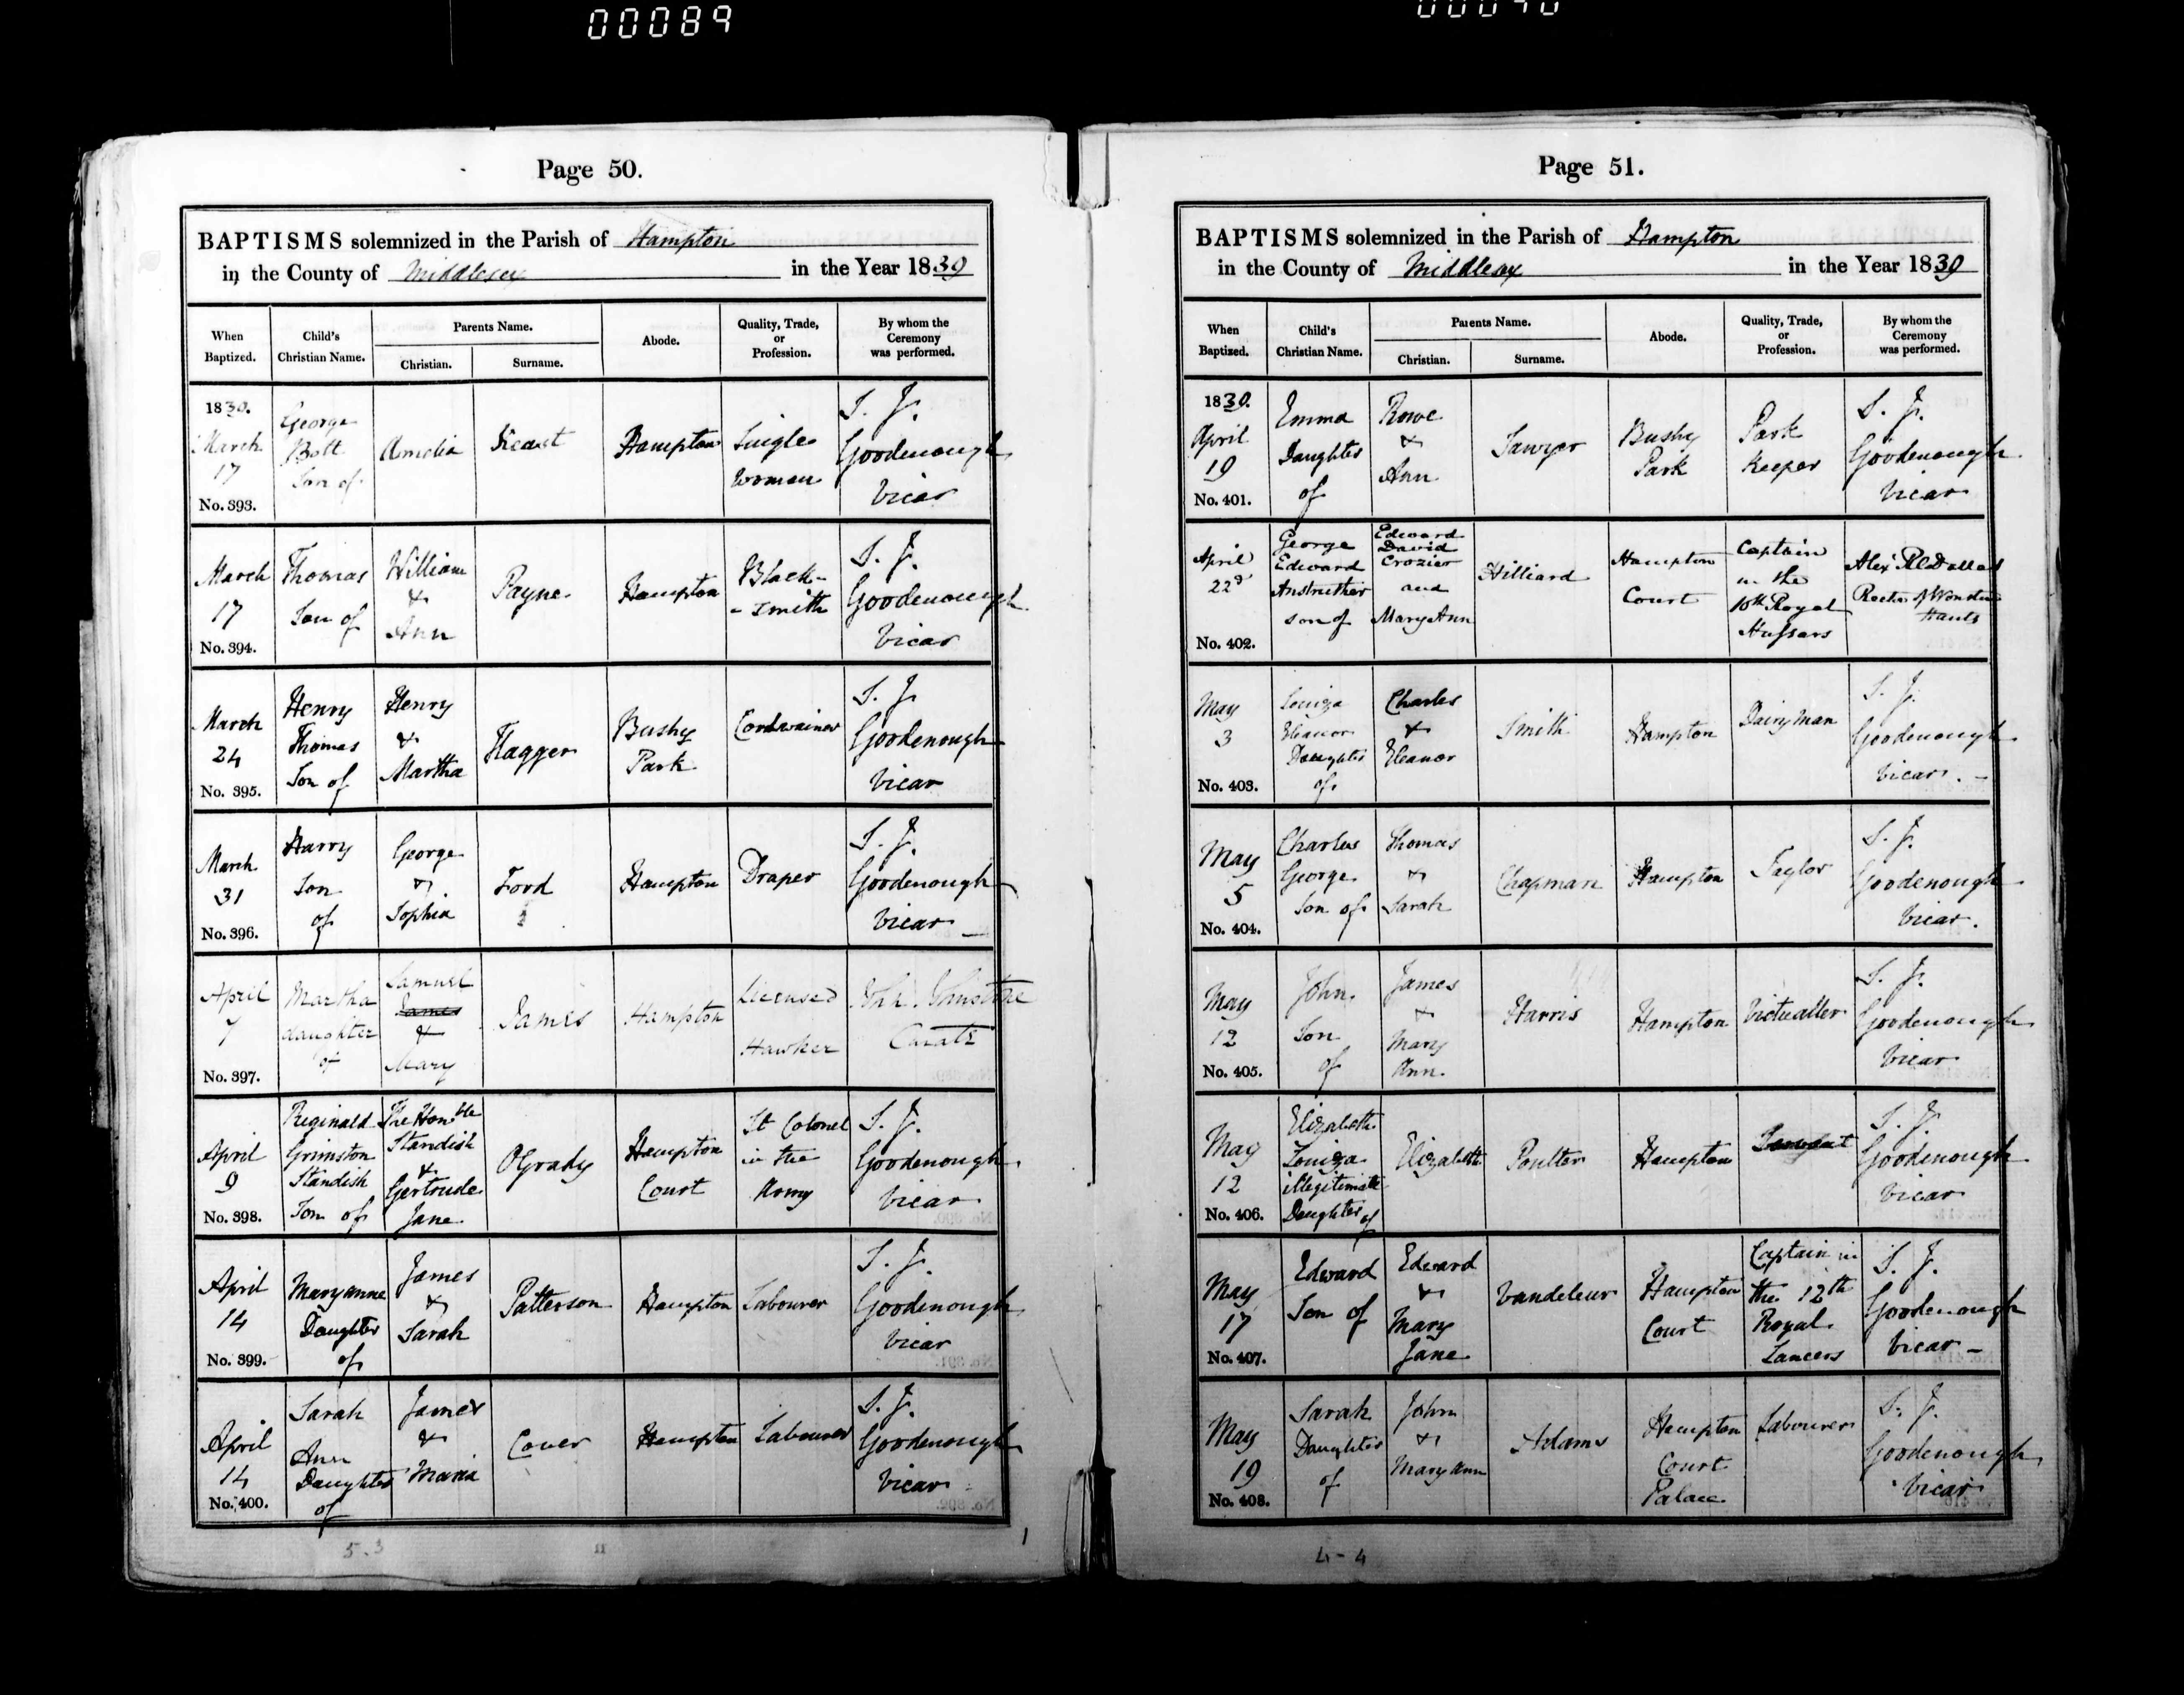 00089
Page 50.
BAPTISMS solemnized in the Parish of Hampton
in the County of Middlesex in the Year 1839
When Baptized.
Child's Christian Name.
Parents Name.
Christian.
Surname.
Abode.
Quality, Trade, or Profession.
By whom the Ceremony was performed.
1839. March 17 No. 393.
George Bolt Son of
Amelia
Hampton
Single Woman
S. J. Goodenough Vicar
March 17 No. 394.
Thomas Son of
William & Ann
Payne
Hampton
Black-smith
S. J. Goodenough Vicar
March 24 No. 395.
Henry Thomas Son of
Henry & Martha
Flagger
Bushy Park
Cordwainer
S. J. Goodenough Vicar
March 31 No. 396.
Harry Son of
George & Sophia
Ford
Hampton
Draper
S. J. Goodenough Vicar
April 7 No. 397.
Martha daughter of
Samuel James & Mary
James
Hampton
Licensed Hawker
Curate
April 9 No. 398.
Reginald Grimston Standish Son of
The Honble Standish & Gertrude Jane
OGrady
Hampton Court
Lt Colonel in the Army
S. J. Goodenough Vicar
April 14 No. 399.
Maryanne Daughter of
James & Sarah
Patterson
Hampton
Labourer
S. J. Goodenough Vicar
April 14 No. 400.
Sarah Ann Daughter of
James & Maria
Cover
Hampton
Labourer
S. J. Goodenough Vicar
5.3
Page 51.
BAPTISMS solemnized in the Parish of Hampton
in the County of Middlesex in the Year 1839
When Baptized.
Child's Christian Name.
Parents Name.
Christian.
Surname.
Abode.
Quality, Trade, or Profession.
By whom the Ceremony was performed.
1839. April 19 No. 401.
Emma Daughter of
Rowe & Ann
Sawyer
Bushy Park
Park Keeper
S. J. Goodenough Vicar
April 22d No. 402.
George Edward Anstruther son of
Edward David Crozier and Mary Ann
Hilliard
Hampton Court
Captain in the 10th Royal Hussars
Hants
May 3 No. 403.
Louiza Eleanor Daughter of
Charles & Eleanor
Smith
Hampton
Dairyman
S. J. Goodenough Vicar. -
May 5 No. 404.
Charles George Son of
Thomas & Sarah
Chapman
Hampton
Taylor
S. J. Goodenough Vicar.
May 12 No. 405.
John Son of
James & Mary Ann
Harris
Hampton
Victualler
S. J. Goodenough Vicar
May 12 No. 406.
Elizabeth Louiza illegitimate Daughter of
Elizabeth
Poulter
Hampton
Servant
S. J. Goodenough Vicar
May 17 No. 407.
Edward Son of
Edward & Mary Jane
Vandeleur
Hampton Court
Captain in the 12th Royal Lancers
S. J. Goodenough Vicar -
May 19 No. 408.
Sarah Daughter of
John & Mary Ann
Adams
Hampton Court Palace
Labourer
S. J. Goodenough Vicar
4-4